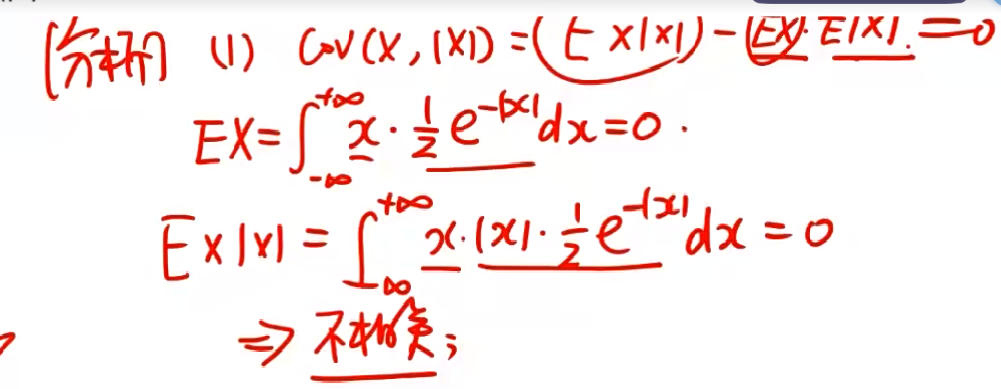 [分析] (1) Cov(X, |X|) = (E X|X|) - (EX)·E|X|. = 0
EX = ∫_{-∞}^{+∞} x · 1/2 e^{-|x|} dx = 0 .
E X|X| = ∫_{-∞}^{+∞} x·|x|· 1/2 e^{-|x|} dx = 0
⇒ 不相关;